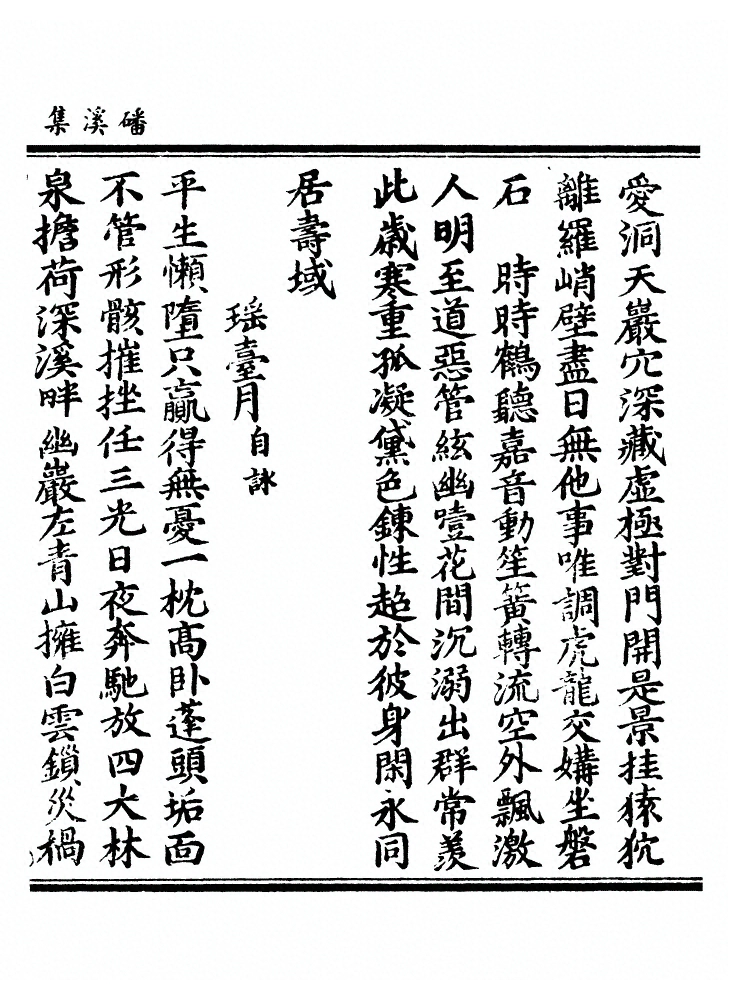 磻溪集
愛洞天巖穴深藏虛極對門開是景挂猿狖
離羅峭壁盡日無他事唯調虎龍交媾坐磐
石　時時鶴聽嘉音動笙簧轉流空外飄激
人明至道惡管絃幽噎花間沉溺出群常羨
此歲寒重孤凝黛色鍊性超於彼身閑永同
居壽域
瑶臺月自詠
平生懶墮只贏得無憂一枕高卧蓬頭垢面
不管形骸摧挫任三光日夜奔馳放四大林
泉擔荷深溪畔幽巖左青山擁白雲鎖災禍